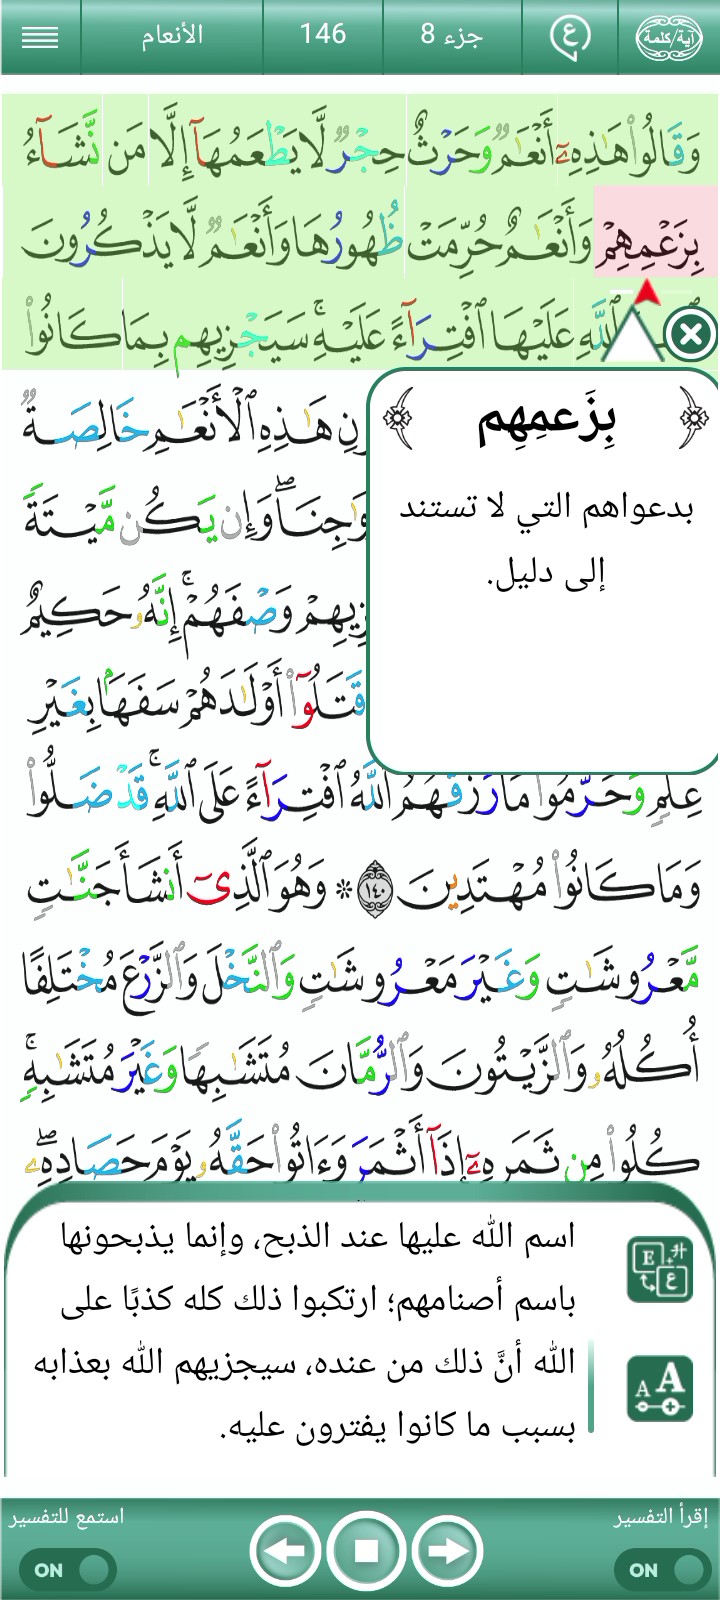 آية/كلمة
ع
جزء 8
146
الأنعام
وَقَالُوا۟ هَـٰذِهِۦٓ أَنْعَـٰمٌ وَحَرْثٌ حِجْرٌ لَّا يَطْعَمُهَآ إِلَّا مَن نَّشَآءُ
بِزَعْمِهِمْ وَأَنْعَـٰمٌ حُرِّمَتْ ظُهُورُهَا وَأَنْعَـٰمٌ لَّا يَذْكُرُونَ
ٱللَّهِ عَلَيْهَا ٱفْتِرَآءً عَلَيْهِ ۚ سَيَجْزِيهِم بِمَا كَانُوا۟
هَـٰذِهِ ٱلْأَنْعَـٰمِ خَالِصَةٌ
وَإِن يَكُن مَّيْتَةً
وَصْفَهُمْ ۚ إِنَّهُۥ حَكِيمٌ
قَتَلُوٓا۟ أَوْلَـٰدَهُمْ سَفَهًۢا بِغَيْرِ
عِلْمٍ وَحَرَّمُوا۟ مَا رَزَقَهُمُ ٱللَّهُ ٱفْتِرَآءً عَلَى ٱللَّهِ ۚ قَدْ ضَلُّوا۟
وَمَا كَانُوا۟ مُهْتَدِينَ ١٤٠ * وَهُوَ ٱلَّذِىٓ أَنشَأَ جَنَّـٰتٍ
مَّعْرُوشَـٰتٍ وَغَيْرَ مَعْرُوشَـٰتٍ وَٱلنَّخْلَ وَٱلزَّرْعَ مُخْتَلِفًا
أُكُلُهُۥ وَٱلزَّيْتُونَ وَٱلرُّمَّانَ مُتَشَـٰبِهًا وَغَيْرَ مُتَشَـٰبِهٍ ۚ
كُلُوا۟ مِن ثَمَرِهِۦٓ إِذَآ أَثْمَرَ وَءَاتُوا۟ حَقَّهُۥ يَوْمَ حَصَادِهِۦ ۖ
بِزَعمِهِم
بدعواهم التي لا تستند
إلى دليل.
اسم الله عليها عند الذبح، وإنما يذبحونها
باسم أصنامهم؛ ارتكبوا ذلك كله كذبًا على
الله أنَّ ذلك من عنده، سيجزيهم الله بعذابه
بسبب ما كانوا يفترون عليه.
E ع
A A
إقرأ التفسير
ON
استمع للتفسير
ON